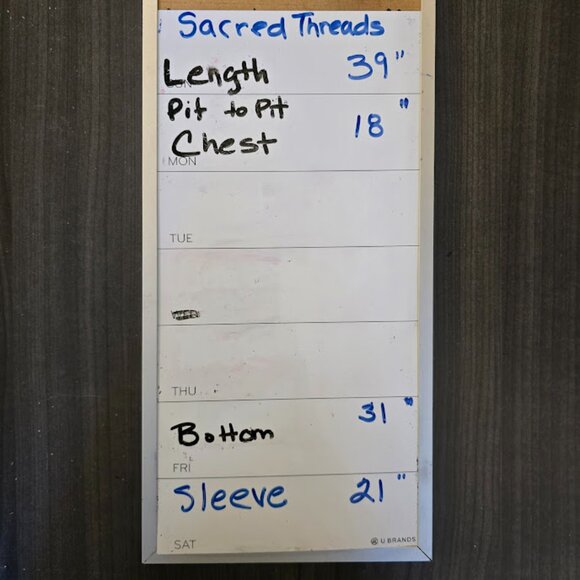 Sacred Threads
Length 39"
SUN
Pit to Pit
Chest 18"
MON
TUE
THU
31"
Bottom
FRI
Sleeve 21"
SAT
U BRANDS